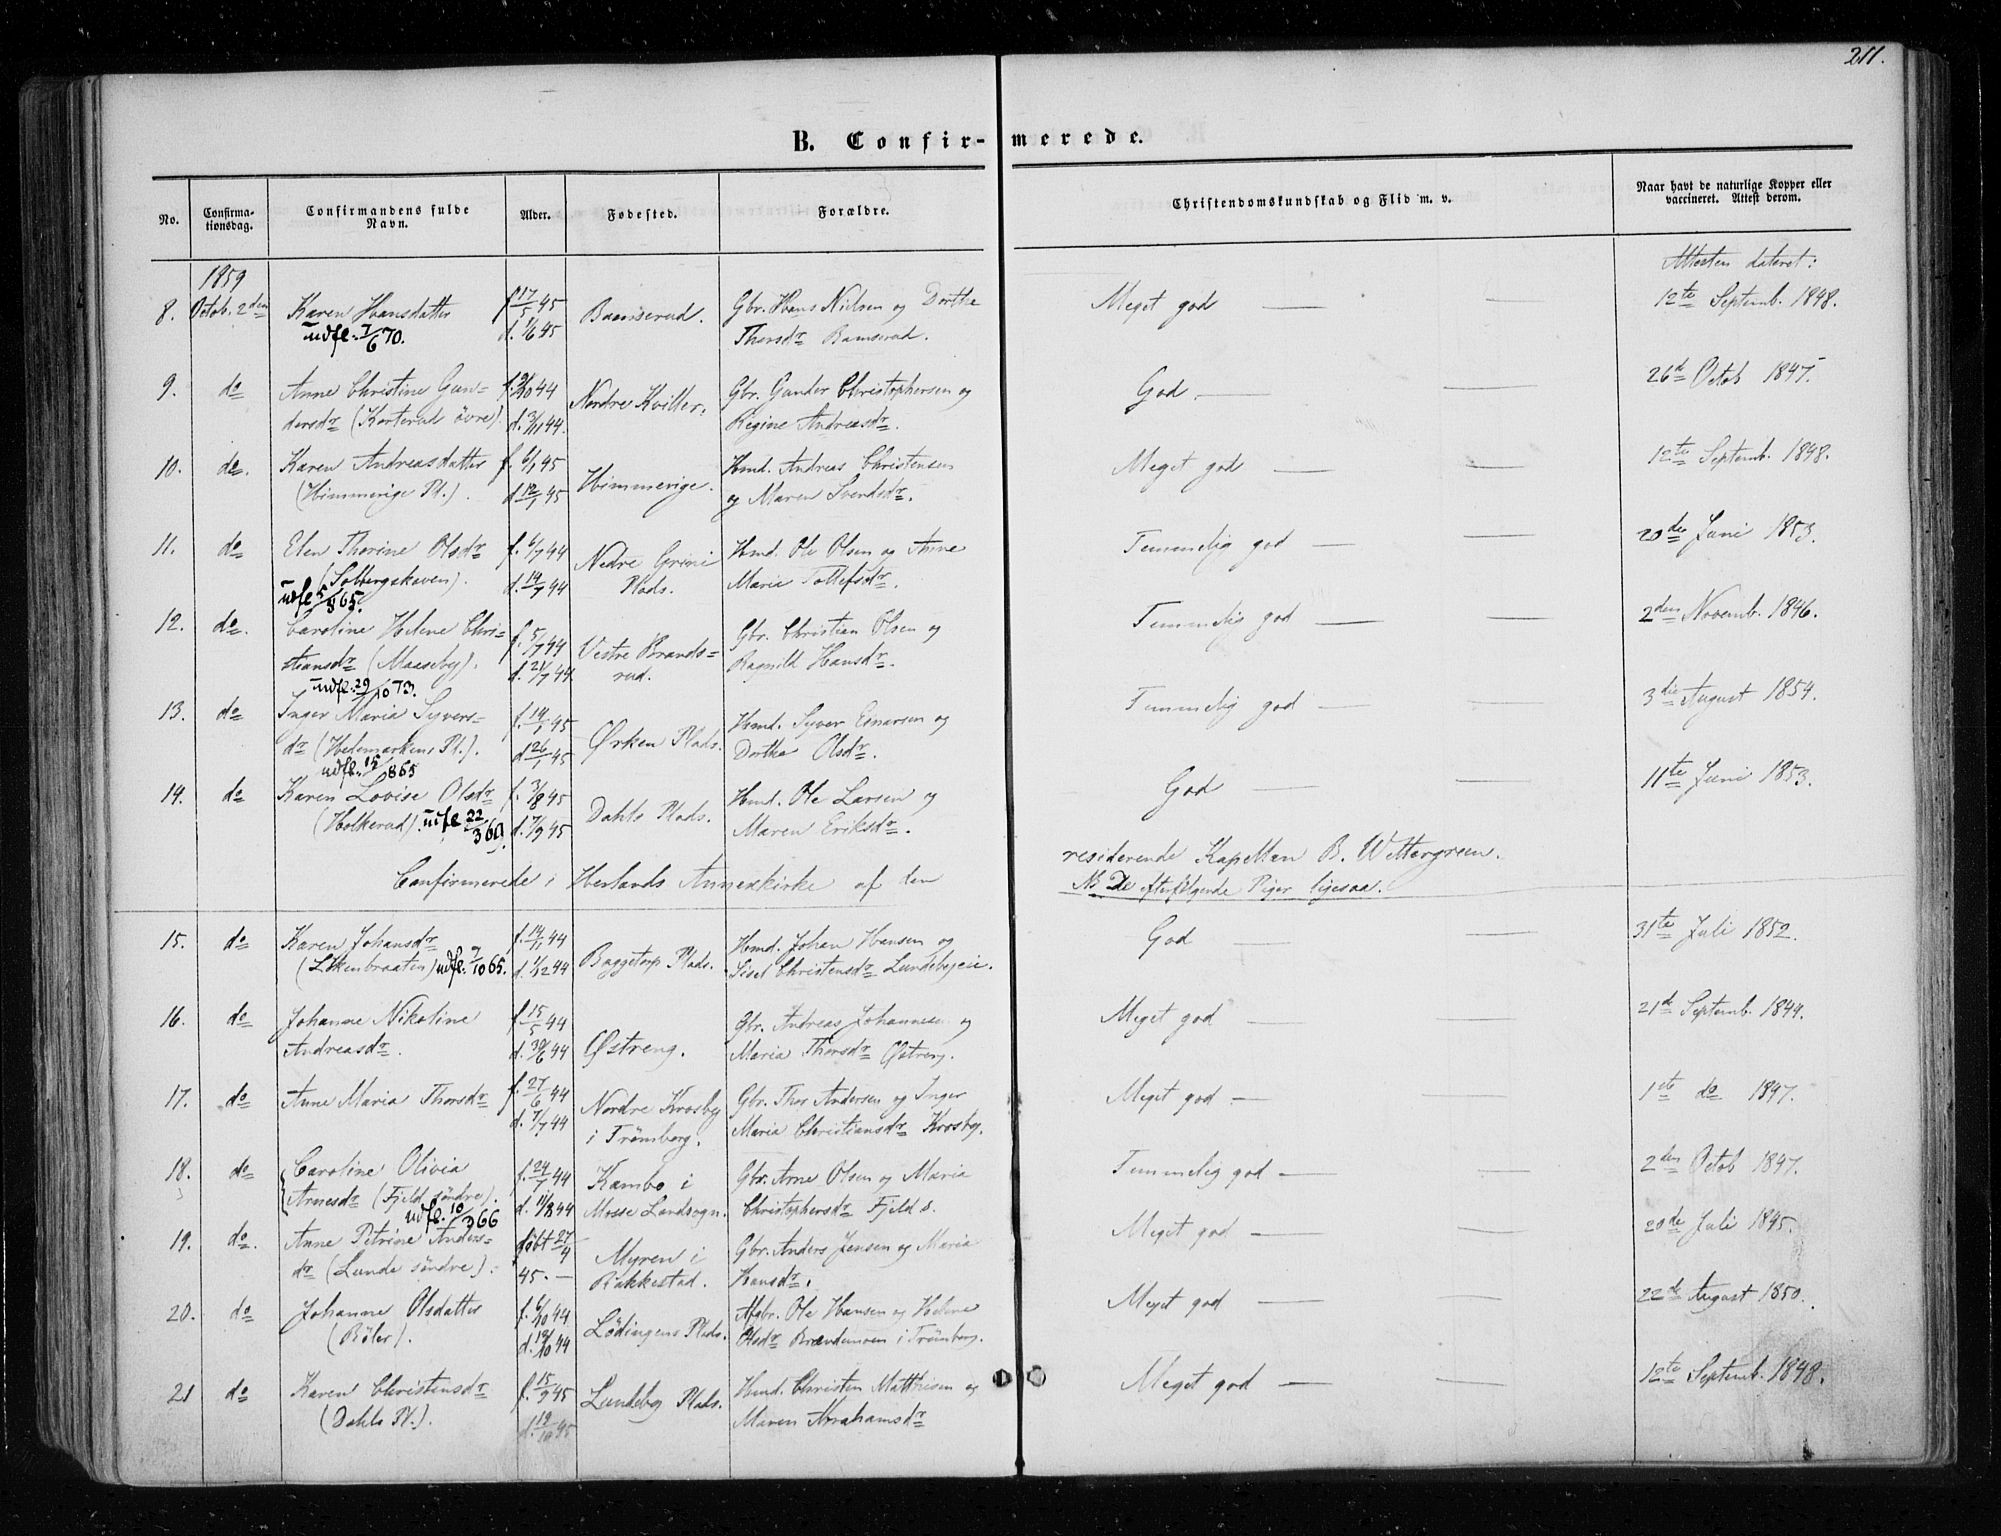 211.
B. Confir- merede.
No. Confirma-tionsdag. Confirmandens fulde Navn. Alder. Fødested. Forældre. Christendomskundskab og Flid m. v. Naar havt de naturlige Kopper eller vaccineret. Attest derom.
1859 Attesten dateret:
8. Octob. 2den Karen Hansdatter f. 17/5 45 Bamserud. Gbr. Hans Nielsen og Dorthe Meget god — — 12te Septemb. 1848.
udfl. 7/6 70. d. 1/6 45 Thorsdr Bamserud.
9. do Anne Christine Gun- 44 Nordre Kviller. Gbr. Gunder Christophersen og God. — — 26d Octob 1847.
dersdr (Korterud övre). d. 3/11 44. Regine Andreasdr.
10. do. Karen Andreasdatter f. 6/1 45 Himmerige. Hmd. Andreas Christensen Meget god — — 12te Septemb. 1848.
(Himmerige Pl.). d. 12/1 45 og Maren Svendsdr.
11. do Elen Thorine Olsdr f. 6/7 44 Nedre Grini Hmd. Ole Olsen og Anne Temmelig god — — 20de Juni 1853.
(Solbergskaven). d. 14/7 44 Plads. Maria Tollefsdr.
udfl 5/8 65.
12. do. Caroline Helene Chri- f. 5/7 44 Vestre Brands= Gbr. Christian Olsen og Temmelig god — — 2den Novemb. 1846.
stiansdr (Maaseby). d. 21/7 44. rud. Ragnild Hansdr.
udfl. 29/10 73.
13. do Inger Maria Syvers= f. 14/1 45 Ørken Plads. Hmd. Syver Enarsen og Temmelig god — — 3die August 1854.
dr (Hedemarkens Pl.). d. 26/1 45 Dorthe Olsdr.
udfl. 15/8 65
14. do Karen Lovise Olsdr f. 3/8 45 Dahls Plads. Hmd. Ole Larsen og God — — 11te Juni 1853.
(Holkerud). udfl 22/3 60. d. 7/9 45 Maren Eriksdr.
Confirmerede i Herlands Annexkirke af den residerende Kapellan B. Wettergreen.
NB De efterfølgende Piger ligesaa.
15. do Karen Johansdr f. 14/1 44 Baggetorp Plads. Hmd. Johan Hansen og God — — 31te Juli 1852.
(Lökenbraaten) udfl. 9/10 65. d. 1/12 44 Sisel Christensdr Lundebyeie.
16. do Johanne Nikoline f. 15/5 44 Østreng. Gbr. Andreas Johannesen og Meget god — — 21de Septemb. 1844.
Andreasdr. d. 30/6 44 Maria Thorsdr Østreng.
17. do Anne Maria Thorsdr f. 27/6 44 Nordre Krosby Gbr. Thor Andersen og Inger Meget god — — 1ste do 1847.
d. 7/7 44 i Trömborg. Maria Christiansdr Krosby.
18. do Caroline Olivia f. 24/7 44 Kambo i Gbr. Arne Olsen og Maria Temmelig god — — 2den Octob 1847.
Arnesdr (Fjeld söndre). d. 11/8 44 Mosse Landsogn. Christophersdr Fjeld s.
udfl. 10/3 66
19. do. Anne Petrine Anders= döbt 27/4 Myren i Gbr. Anders Jensen og Maria Meget god — — 20de Juli 1845.
dr (Lunde söndre). 45. — Rakkestad. Hansdr.
20. do Johanne Olsdatter f. 6/10 44 Lödingens Plads. Afgbr. Ole Hansen og Helene Meget god — — 22de August 1850.
(Böler). d. 44 Olsdr Brændemoen i Trömborg.
21 do Karen Christensdr f. 15/9 45 Lundeby Plads. Hmd. Christen Matthisen og Meget god — — 12te Septemb. 1848.
(Dahls Pl.). d. 19/10 45 Maren Abrahamsdr